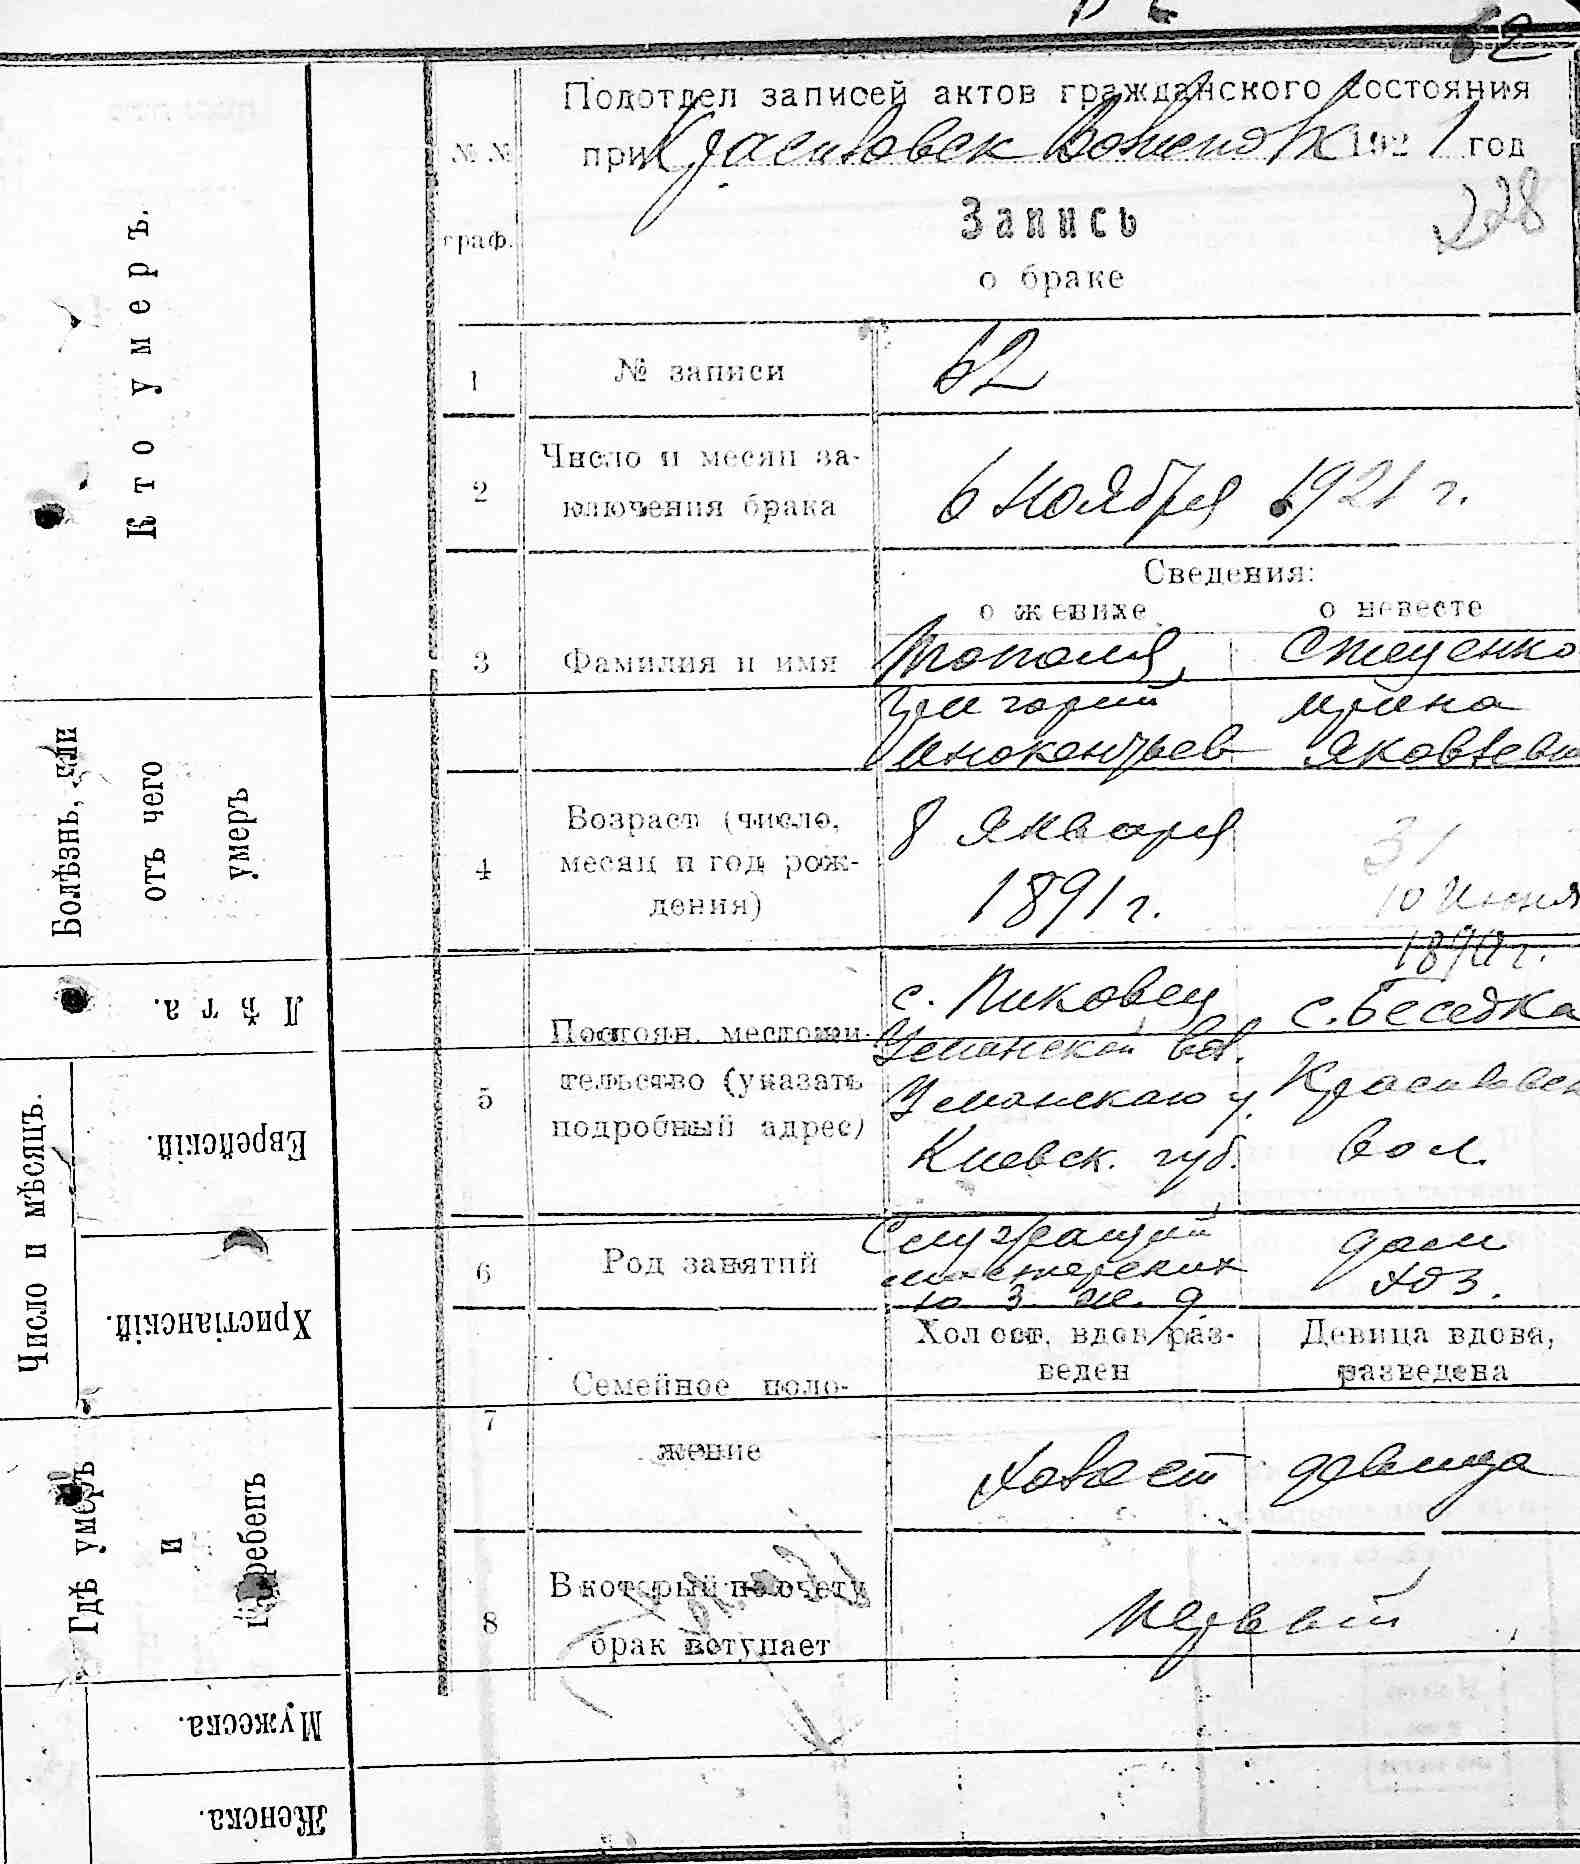 62
Подотдел записей актов гражданского состояния
при Красиловск 1921 год
228
№ №
граф.
Запись
о браке
1 № записи 62
2 Число и месяц за-
ключения брака
6 Ноября 1921 г.
Сведения:
о женихе о невесте
3 Фамилия и имя
Тополя, Стеценко
Григорий Ирина
Инокентьев Яковлевн
4 Возраст (число,
месяц и год рож-
дения)
8 Января
1891 г.
31
10 Июня
5 Постоян. местожи-
тельство (указать
подробный адрес)
с. Пиковец с. Беседка
Уманской вол.
Уманскаго у. Красиловск
Киевск. губ. вол.
6 Род занятий
Служащий
мастерских
ю з ж д
дом
хоз.
7 Семейное поло-
жение
Холост, вдов, раз-
веден
Девица вдова,
разведена
холост девица
8 В который по счету
брак вступает
первый
Кто умеръ.
Болѣзнь, или
отъ чего
умеръ
Лѣта.
Число и мѣсяцъ.
Еврейскій.
Христіанскій.
Гдѣ умеръ
и
погребенъ
Мужеска.
Женска.